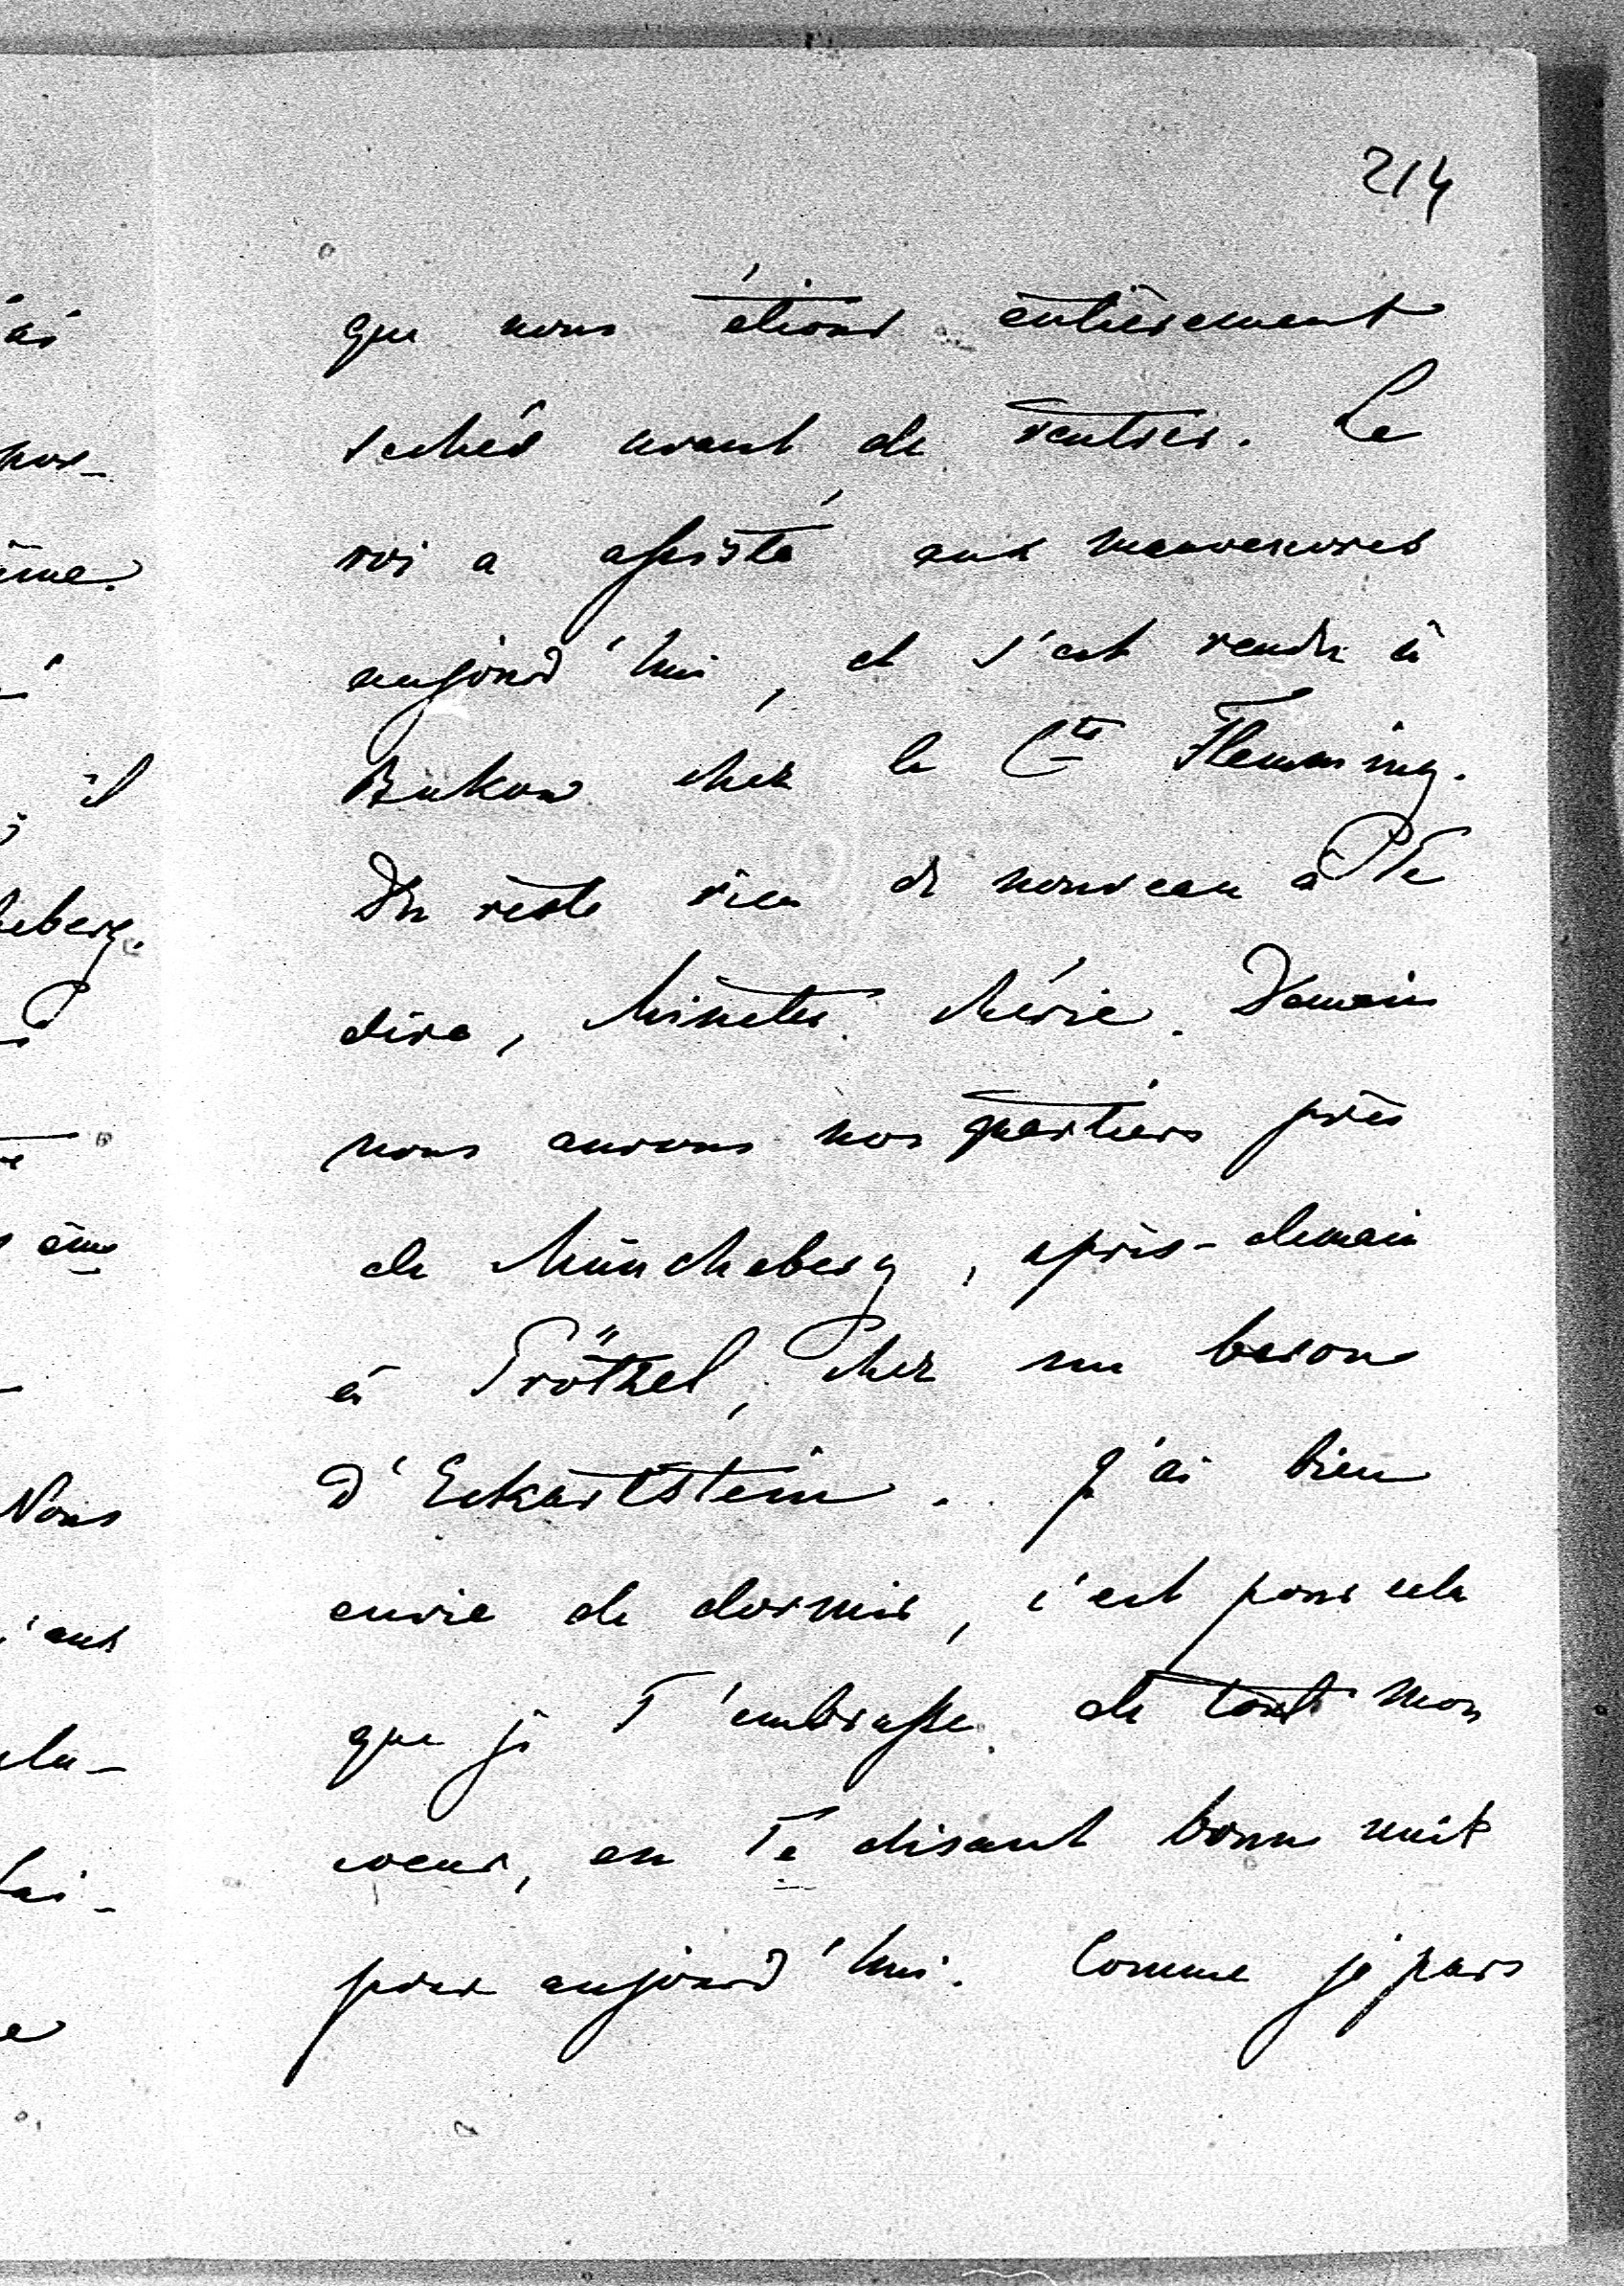 214
que nous étions entièrement
sechés avant de rentrer. Le
roi a assisté aux manoeuvres
aujourd'hui, et s'est rendu à
Bukow chez le Cte Flemming.
Du reste rien de nouveau à Te
dire, Minette chérie. Demain
nous aurons nos quartiers près
de Müncheberg, après-demain
à Prötzel, chez un baron
d'Eckartstein. J'ai bien
envie de dormir, c'est pour cela
que je T'embrasse de tout mon
coeur, en Te disant bonne nuit
pour aujourd'hui. Comme je pars